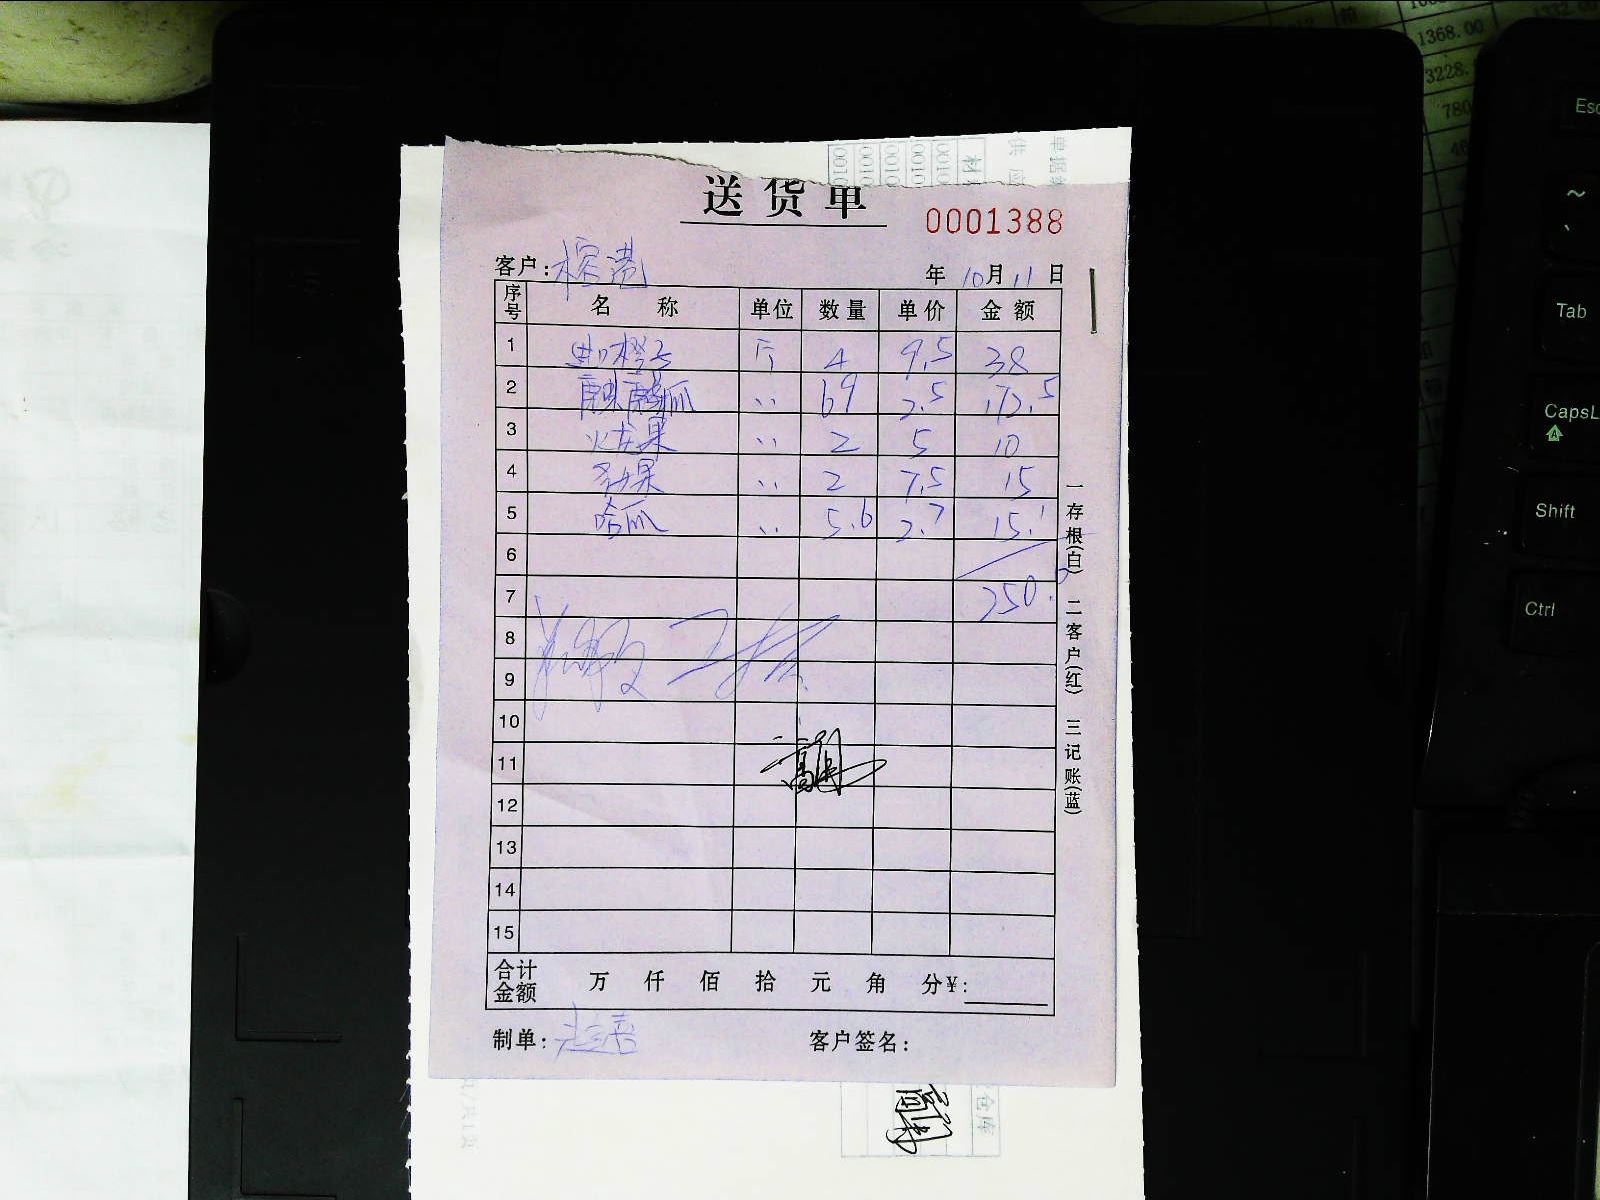 1368.00
3228.
780
单据
供应
材
0010
0010
0010
0010
送货单
0001388
客户: 榕港
年 10月 11日
序号 名称 单位 数量 单价 金额
1 斤 4 9.5 38
2 〃 69 2.5 172.5
3 火龙果 〃 2 5 10
4 〃 2 7.5 15
5 哈瓜 〃 5.6 2.7 15.1
6
7 250.
8
9
10
11
12
13
14
15
合计金额 万 仟 佰 拾 元 角 分 ¥:
制单:
客户签名:
一存根(白) 二客户(红) 三记账(蓝)
仓库
Esc
~
`
Tab
CapsL
A
Shift
Ctrl